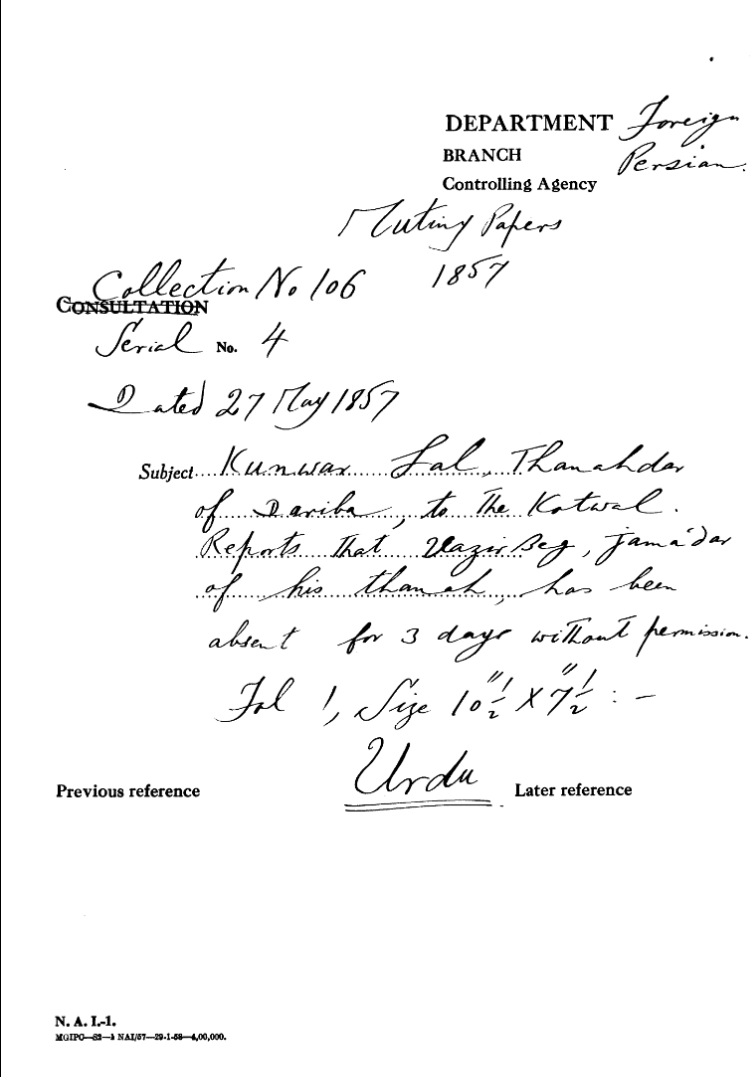 DEPARTMENT Foreign
BRANCH Persian.
Controlling Agency
Mutiny Papers
1857
Collection No 106
CONSULTATION
Serial No. 4
Dated 27 May 1857
Subject.... Kunwar Lal, Thanahdar
of Dariba, to the Kotwal.
Reports that Wazir Beg, jama'dar
of his thanah, has been
absent for 3 days without permission.
Fol 1, Size 10 1/2" X 7 1/2" : –
Urdu
Previous reference
Later reference
N. A. I.-1.
MGIPO—82—1 NAI/57—29-1-58—4,00,000.